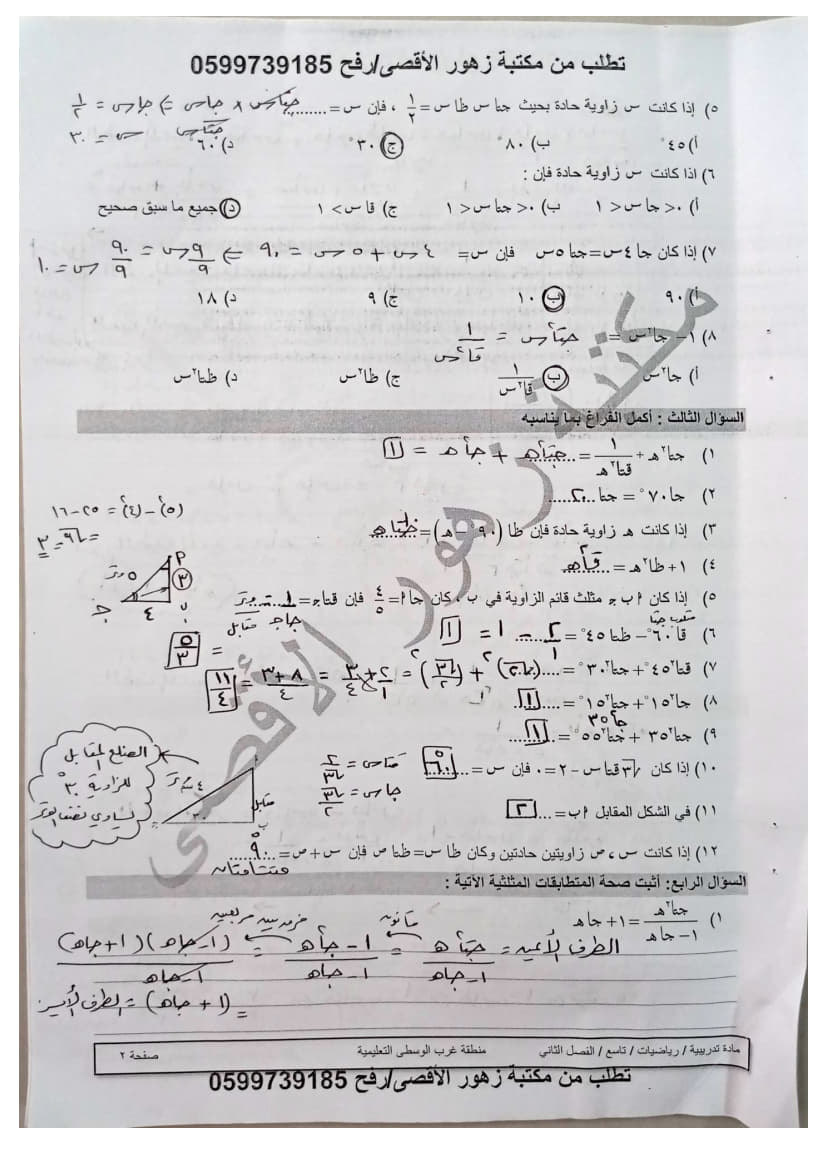 تطلب من مكتبة زهور الأقصى/رفح 0599739185
٥) إذا كانت س زاوية حادة بحيث جتا س ظا س = ١/٢ ، فإن س = ........ جتاس × جاس/جتاس ⇐ جاس = ١/٢
س = ٣٠
أ) ٤٥° ب) ٨٠° ج) ٣٠° د) ٦٠°
٦) اذا كانت س زاوية حادة فإن :
أ) ٠ < جا س < ١ ب) ٠ < جتا س < ١ ج) قا س > ١ د) جميع ما سبق صحيح
٧) إذا كان جا ٤س = جتا ٥س فإن س = ٤س + ٥س = ٩٠ ⇐ ٩س/٩ = ٩٠/٩ س = ١٠
أ) ٩٠ ب) ١٠ ج) ٩ د) ١٨
٨) ١ - جا²س = جتا²س = ١/قا²س
أ) جا²س ب) ١/قا²س ج) ظا²س د) ظتا²س
السؤال الثالث : أكمل الفراغ بما يناسبه
١) جتا²هـ + ١/قتا²هـ = جتا²هـ + جا²هـ = ١
٢) جا ٧٠° = جتا ...٢٠...
(٥)² - (٤)² = ٢٥ - ١٦
٣) إذا كانت هـ زاوية حادة فإن ظا (٩٠ - هـ) = ظتاهـ
= √٩ = ٣
٤) ١ + ظا²هـ = قا²هـ
٥ وتر ٣ ٤ ب جـ
٥) إذا كان أ ب جـ مثلث قائم الزاوية في ب ، كان جا أ = ٤/٥ فإن قتا جـ = ١/جاجـ = وتر/مقابل
= ٥/٣
مقلوب جتا
٦) قا ٦٠° - ظتا ٤٥° = ...٢ - ١ = ١
٧) قتا²٤٥° + جتا²٣٠° = (√٢)² + (√٣/٢)² = ٢/١ + ٣/٤ = ٨+٣/٤ = ١١/٤
٨) جا²١٥° + جتا²١٥° = ١
جا²٣٥
٩) جتا²٣٥° + جتا²٥٥° = ١
١٠) إذا كان √٣ قتا س - ٢ = ٠ فإن س = ٦٠° قتاس = ٢/√٣
جاس = √٣/٢
الضلع المقابل
للزاوية ٣٠°
يساوي نصف الوتر
٤ وتر مقابل ٣٠ ب
١١) في الشكل المقابل أ ب = ... ٢
١٢) إذا كانت س ، ص زاويتين حادتين وكان ظا س = ظتا ص فإن س + ص = ...٩٠°...
متتامتان
السؤال الرابع: أثبت صحة المتطابقات المثلثية الآتية :
١) جتا²هـ/١ - جا هـ = ١ + جا هـ
قانون فرق بين مربعين
الطرف الأيمن = جتا²هـ/١ - جاهـ = ١ - جا²هـ/١ - جاهـ = (١ - جاهـ)(١ + جاهـ)/١ - جاهـ
= (١ + جاهـ) = الطرف الأيسر
مادة تدريبية / رياضيات / تاسع / الفصل الثاني منطقة غرب الوسطى التعليمية صفحة ٢
تطلب من مكتبة زهور الأقصى/رفح 0599739185
مكتبة زهور الأقصى